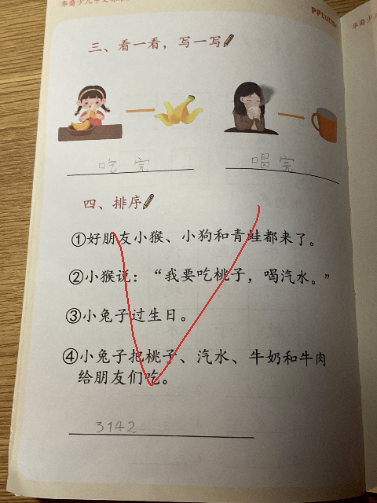 三、看一看，写一写
吃完 喝完
四、排序
①好朋友小猴、小狗和青蛙都来了。
②小猴说：“我要吃桃子，喝汽水。”
③小兔子过生日。
④小兔子把桃子、汽水、牛奶和牛肉
给朋友们吃。
3142